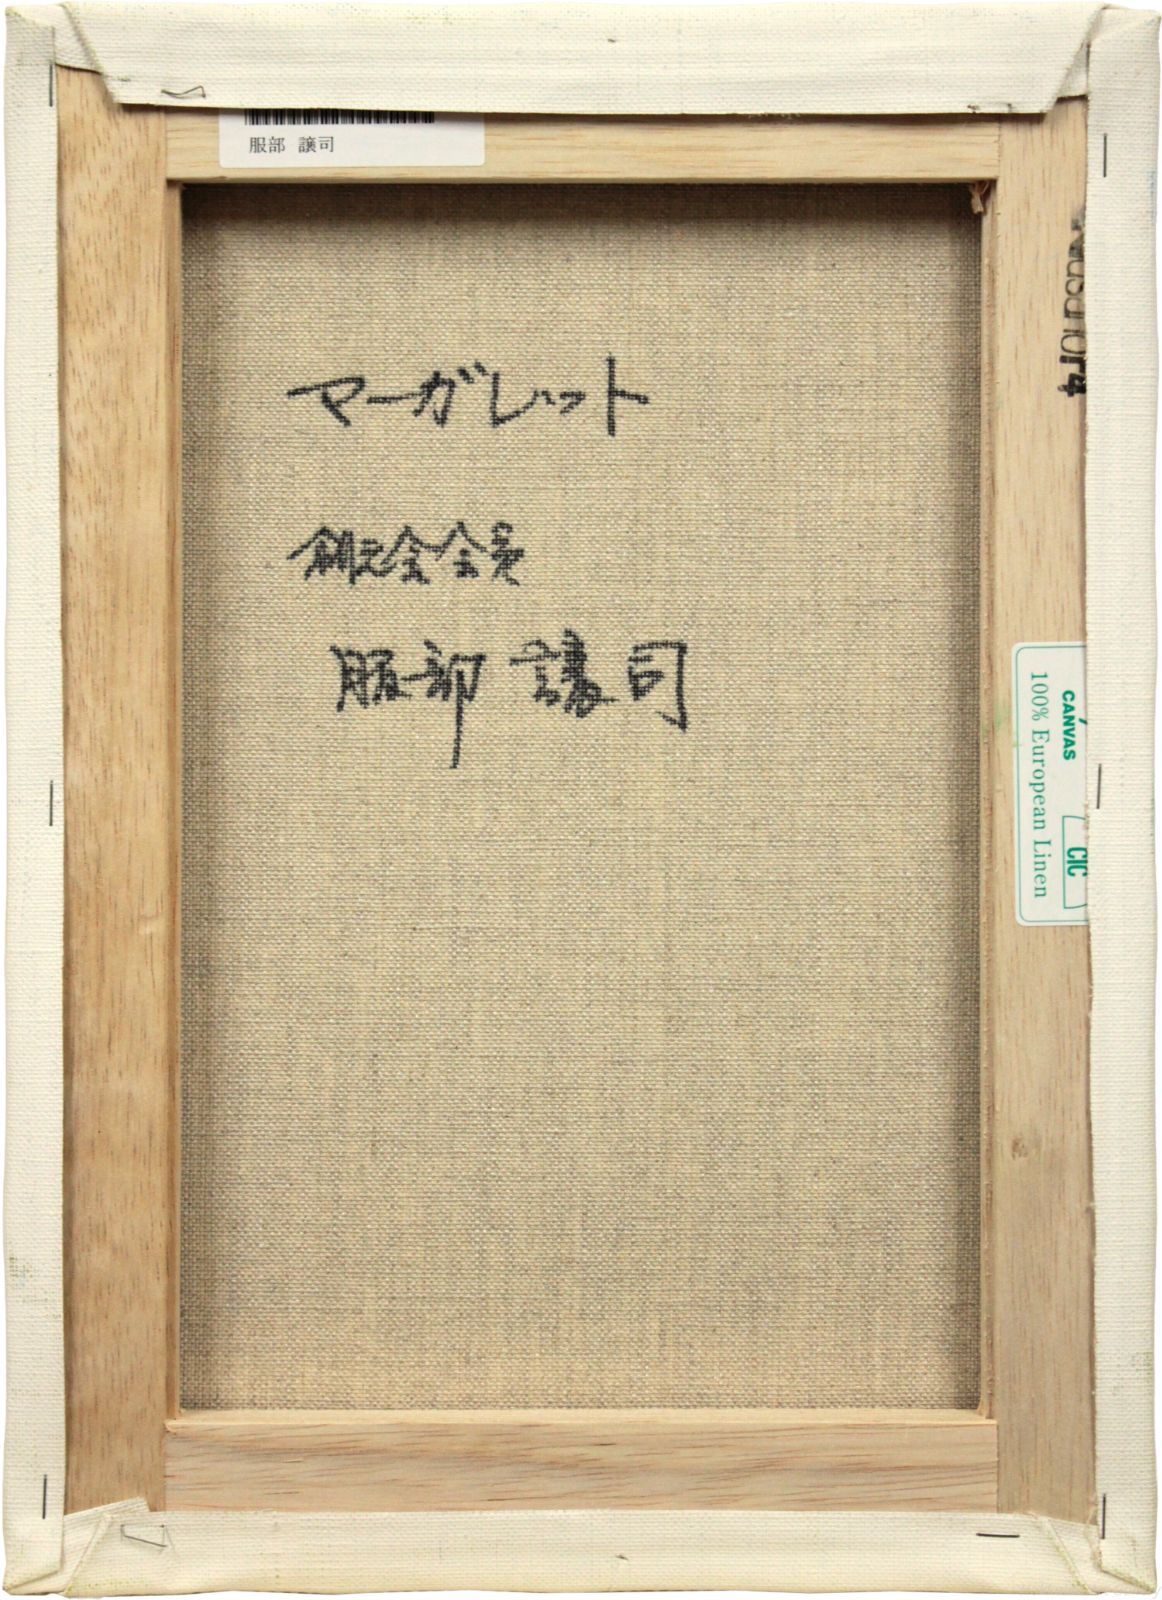 服部 譲司
マーガレット
創元会会員
服部 譲司
CANVAS
CIC
100% European Linen